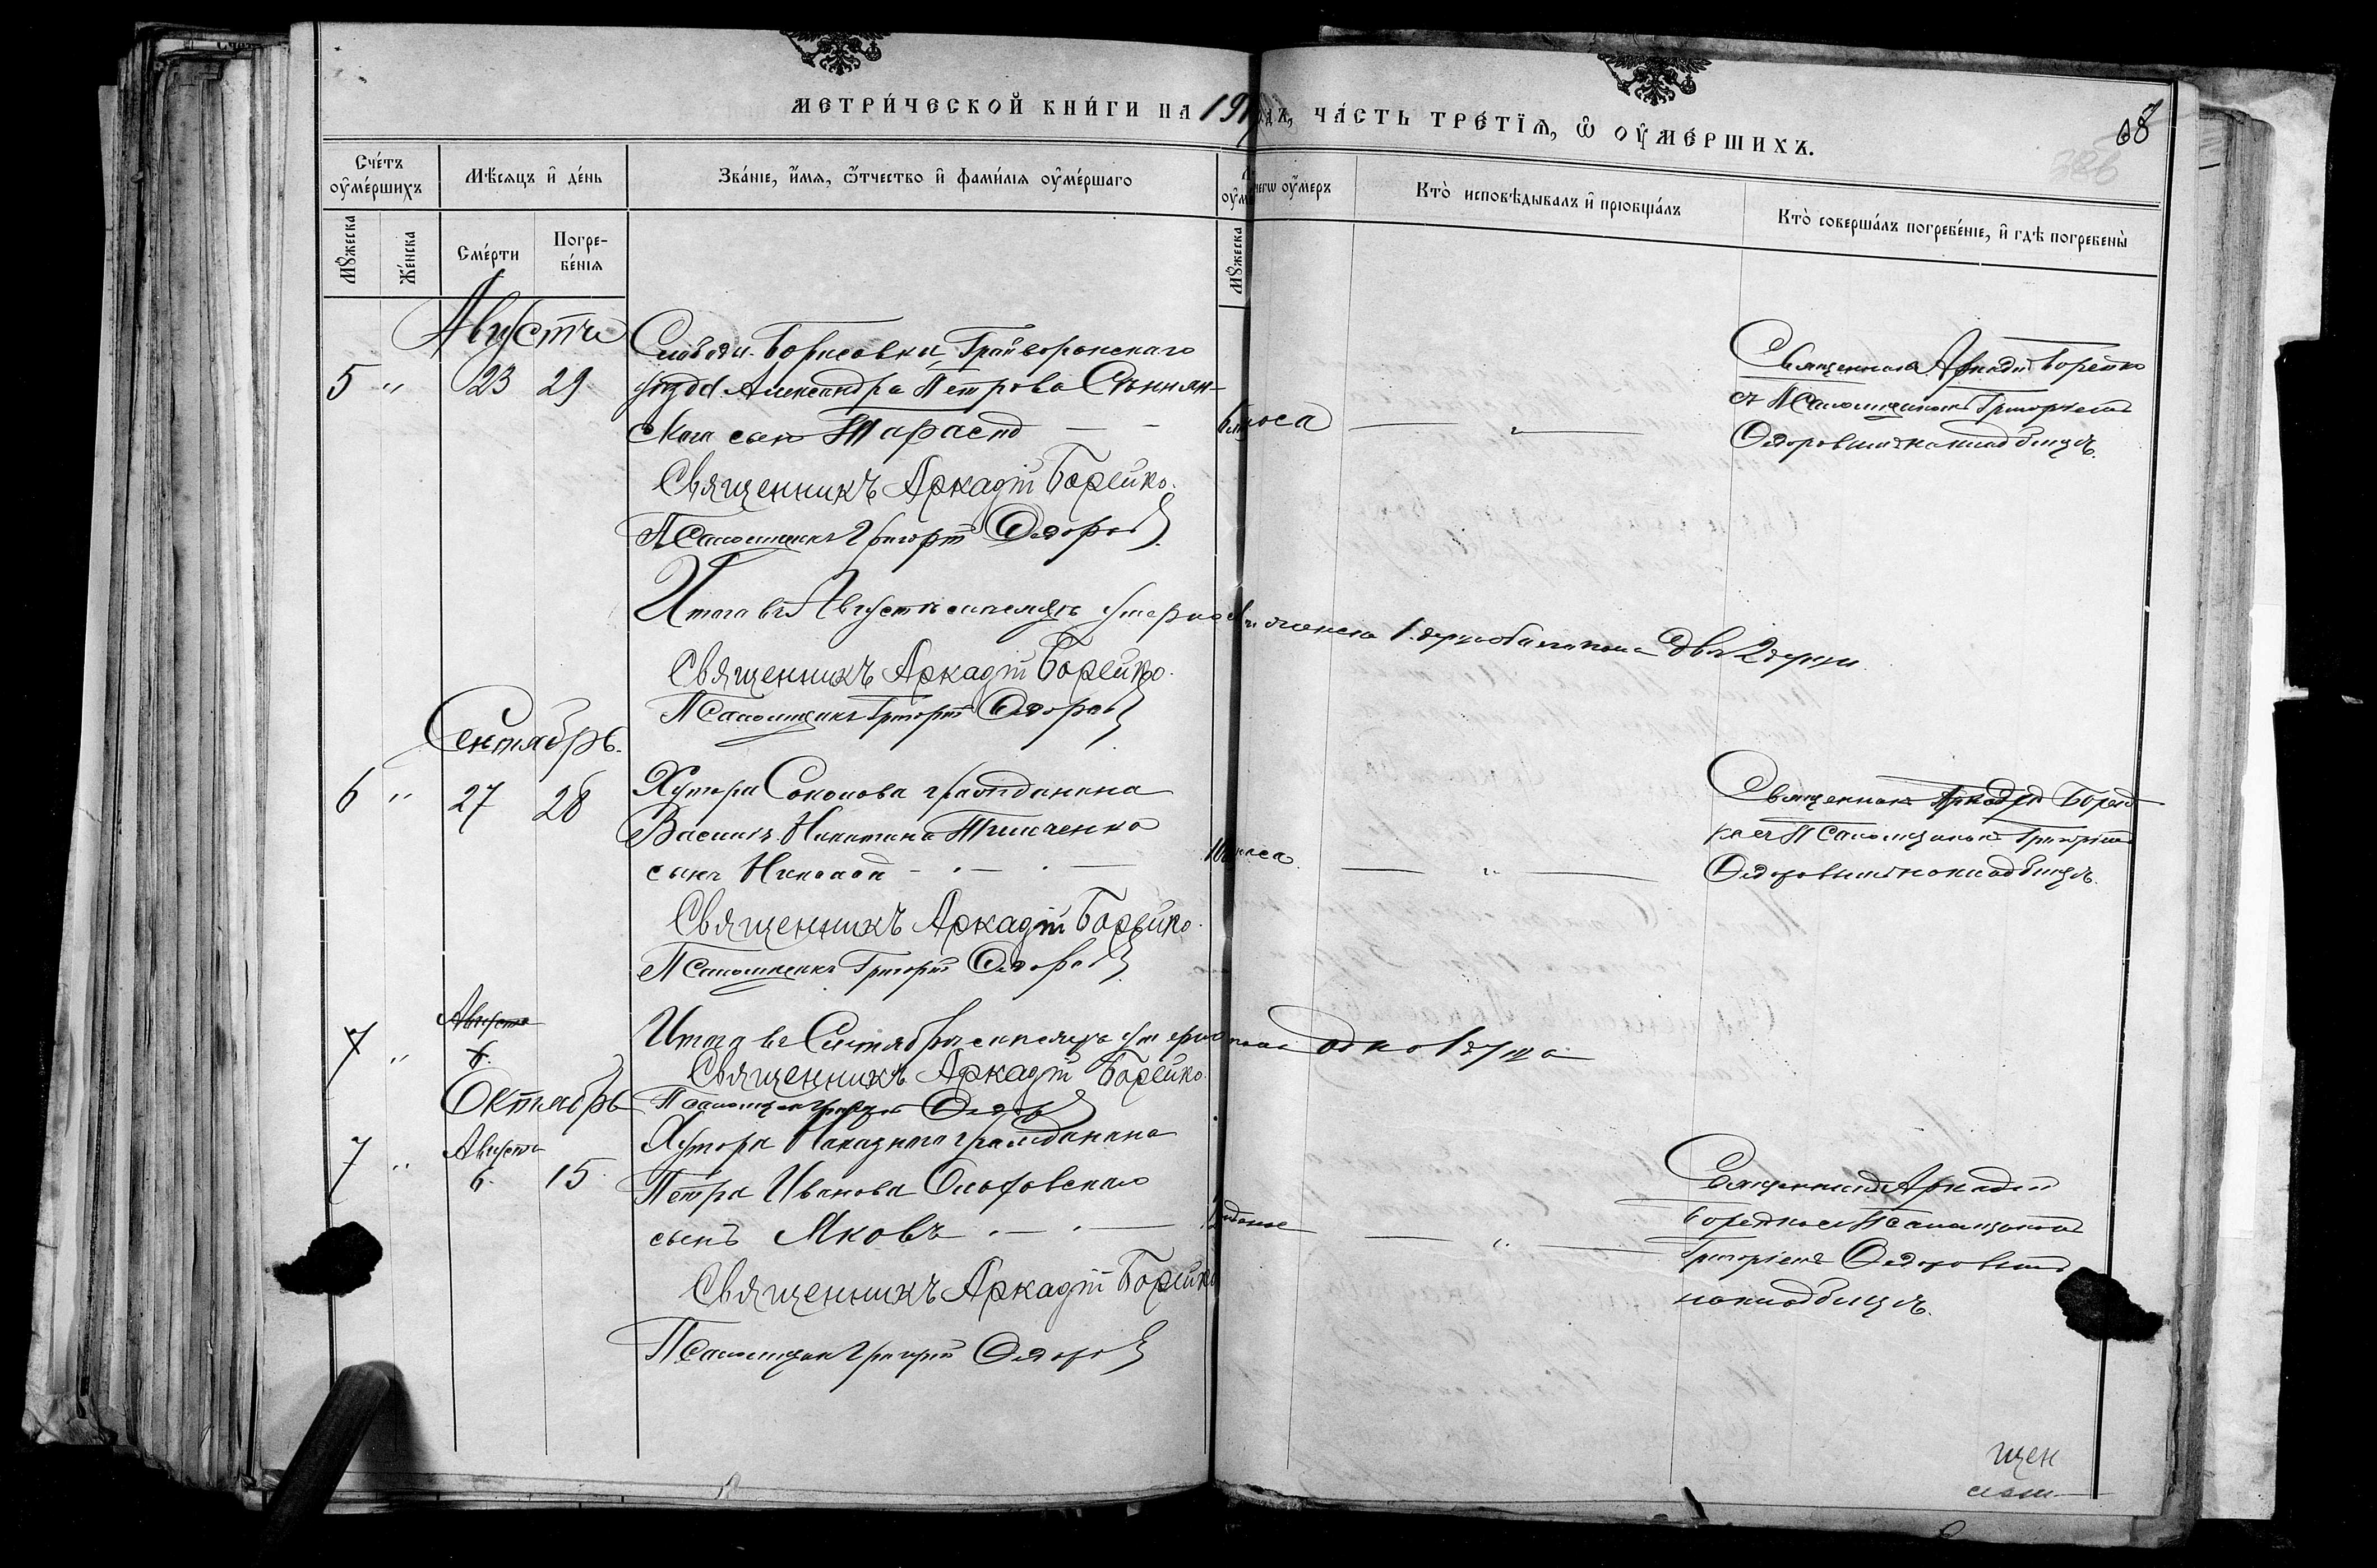 МЕТРИ́ЧЕСКОЙ КНИ́ГИ НА 19
ЧА́СТЬ ТРЕ́ТЇѦ, Ѡ ОУ҆МЕ́РШИХЪ.
68
Сче́тъ оу҆ме́ршихъ
Мѣсяцъ и҆ де́нь
Зва́нїе, и҆́мя, ѻ҆́тчество и҆ фами́лїя оу҆ме́ршаго
оу҆меръ
Кто̀ исповѣ́дывалъ и҆ прїобща́лъ
Кто̀ соверша́лъ погребе́нїе, и҆ гдѣ̀ погребены̀
Мꙋ́жеска
Же́нска
Сме́рти
Погребе́нїя
Мꙋ́жеска
Августъ
5 " 23 29
Слободы Борисовки Грайворонскаго
Александра Петрова
сынъ Тарасій
Священникъ Аркадій Борейко
съ Псаломщикомъ Григоріемъ
Ѳедоровымъ на кладбищѣ.
Священникъ Аркадій Борейко.
Псаломщикъ Григорій Ѳедоровъ
Итого въ Августѣ мѣсяцѣ умерло женска 1. обоего пола двѣ 2 души
Священникъ Аркадій Борейко.
Псаломщикъ Григорій Ѳедоровъ
Сентябрь.
6 " 27 28
Хутора Соколова гражданина
Василія Никитина Тимченко
сынъ Николай
Священникъ Аркадій Борей
ко съ Псаломщикомъ Григоріемъ
Ѳедоровымъ на кладбищѣ.
Священникъ Аркадій Борейко.
Псаломщикъ Григорій Ѳедоровъ
Августа
7 " 6.
Итого въ Сентябрѣ мѣсяцѣ умерло одна 1 душа
Священникъ Аркадій Борейко.
Октябрь
Псаломщикъ Григорій Ѳедоровъ
Августа
7 " 6. 15.
Хутора гражданина
Петра Иванова
сынъ Яковъ
Священникъ Аркадій
Борейко съ Псаломщикомъ
Григоріемъ Ѳедоровымъ
на кладбищѣ.
Священникъ Аркадій Борейко
Псаломщикъ Григорій Ѳедоровъ
щен